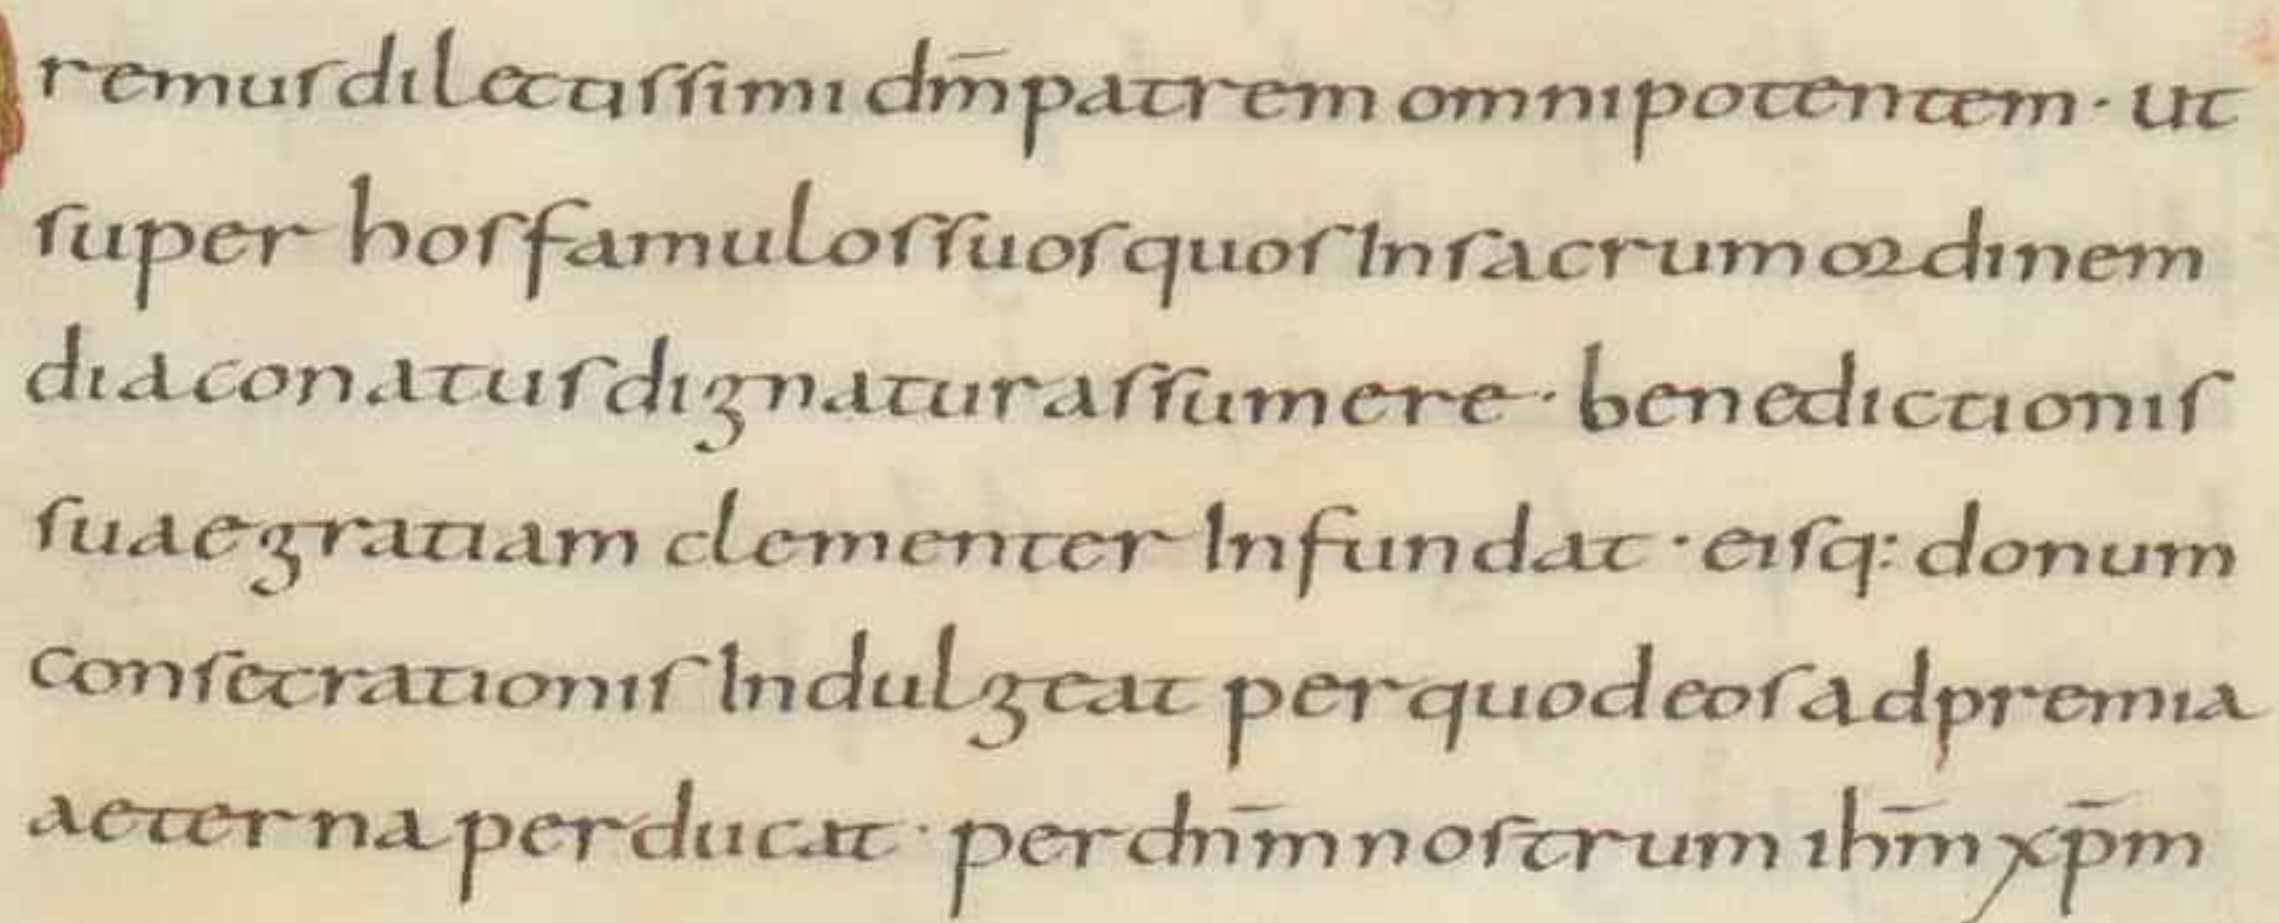 remus dilectissimi dm̄ patrem omnipotentem · ut
super hos famulos suos quos In sacrum ordinem
diaconatus dignatur assumere · benedictionis
suae gratiam clementer Infundat · eisq: donum
consecrationis Indulgeat per quod eos ad premia
aeterna perducat · per dn̄m nostrum ihm̄ xp̄m